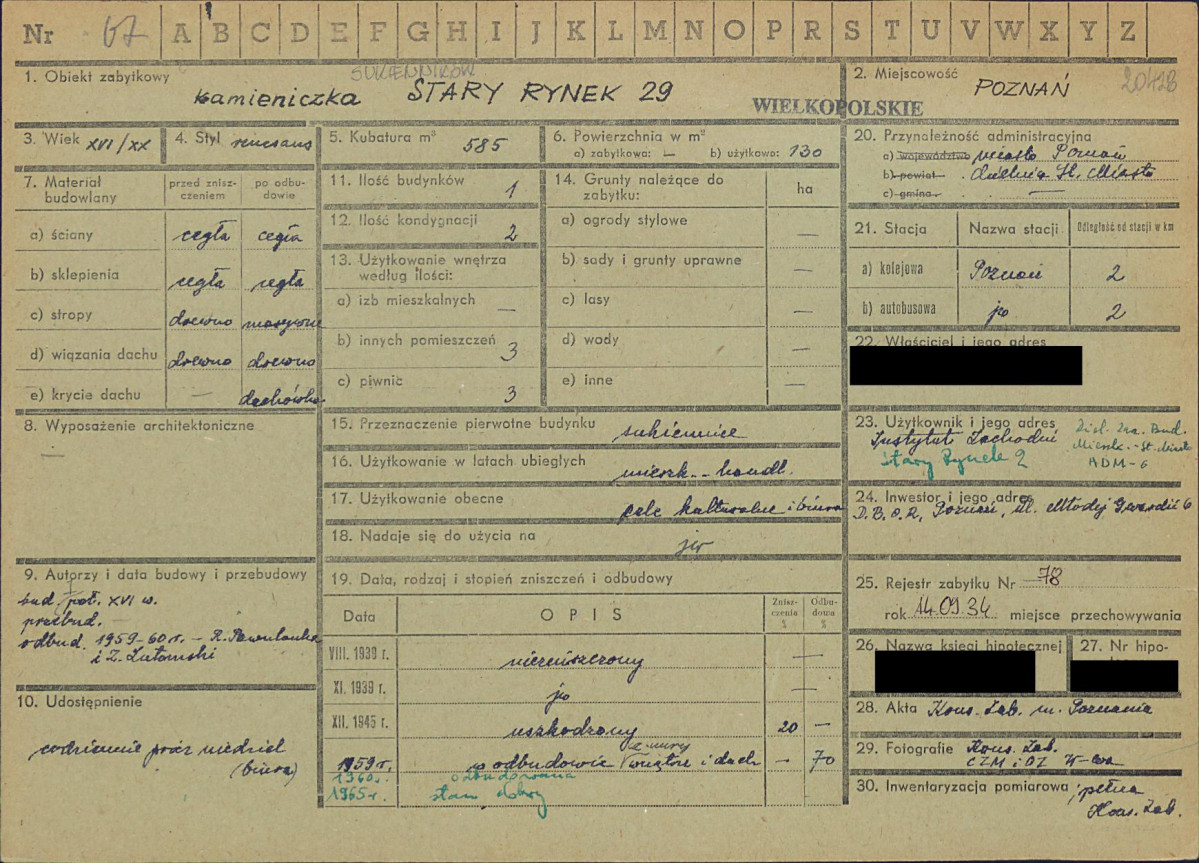 Nr 67 A B C D E F G H I J K L M N O P R S T U V W X Y Z
1. Obiekt zabytkowy
SUKIENNIKÓW
kamieniczka STARY RYNEK 29
WIELKOPOLSKIE
2. Miejscowość
POZNAŃ
20428
3. Wiek XVI/XX
4. Styl renesans
5. Kubatura m³ 585
6. Powierzchnia w m²
a) zabytkowa: — b) użytkowa: 130
7. Materiał budowlany
przed zniszczeniem
po odbudowie
a) ściany cegła cegła
b) sklepienia cegła cegła
c) stropy drewno masywne
d) wiązania dachu drewno drewno
e) krycie dachu — dachówka
8. Wyposażenie architektoniczne
—
9. Autorzy i data budowy i przebudowy
bud. poł. XVI w.
przebud.
odbud. 1959-60 r. – R. Pawulanka
i Z. Lutomski
10. Udostępnienie
codziennie prócz niedziel
(biura)
11. Ilość budynków 1
12. Ilość kondygnacji 2
13. Użytkowanie wnętrza
według ilości:
a) izb mieszkalnych —
b) innych pomieszczeń 3
c) piwnic 3
14. Grunty należące do
zabytku:
ha
a) ogrody stylowe —
b) sady i grunty uprawne —
c) lasy —
d) wody —
e) inne —
15. Przeznaczenie pierwotne budynku sukiennice
16. Użytkowanie w latach ubiegłych mieszk. - handl.
17. Użytkowanie obecne cele kulturalne i biura
18. Nadaje się do użycia na jw
19. Data, rodzaj i stopień zniszczeń i odbudowy
Data OPIS Zniszczenia % Odbudowa %
VIII. 1939 r. niezniszczony —
XI. 1939 r. jw —
XII. 1945 r. uszkodzony 20 —
1959 r. w odbudowie wnętrze i dach – 70
z mury
1960 r. odbudowana
1965 r. stan dobry
20. Przynależność administracyjna
a) województwo miasto Poznań
b) powiat dzielnica St. Miasto
c) gmina —
21. Stacja Nazwa stacji Odległość od stacji w km
a) kolejowa Poznań 2
b) autobusowa jw 2
22. Właściciel i jego adres
23. Użytkownik i jego adres
Instytut Zachodni
Stary Rynek 2
Bud.
Mieszk. - St. Miasto
ADM-6
24. Inwestor i jego adres
D.B.O.R, Poznań, ul. Młodej Gwardii 6
25. Rejestr zabytku Nr 78
rok 14.09.34 miejsce przechowywania
26. Nazwa księgi hipotecznej
27. Nr hipo-
28. Akta Kons. Zab. m. Poznania
29. Fotografie Kons. Zab.
CZM i OZ W-wa
30. Inwentaryzacja pomiarowa pełna
Kons. Zab.